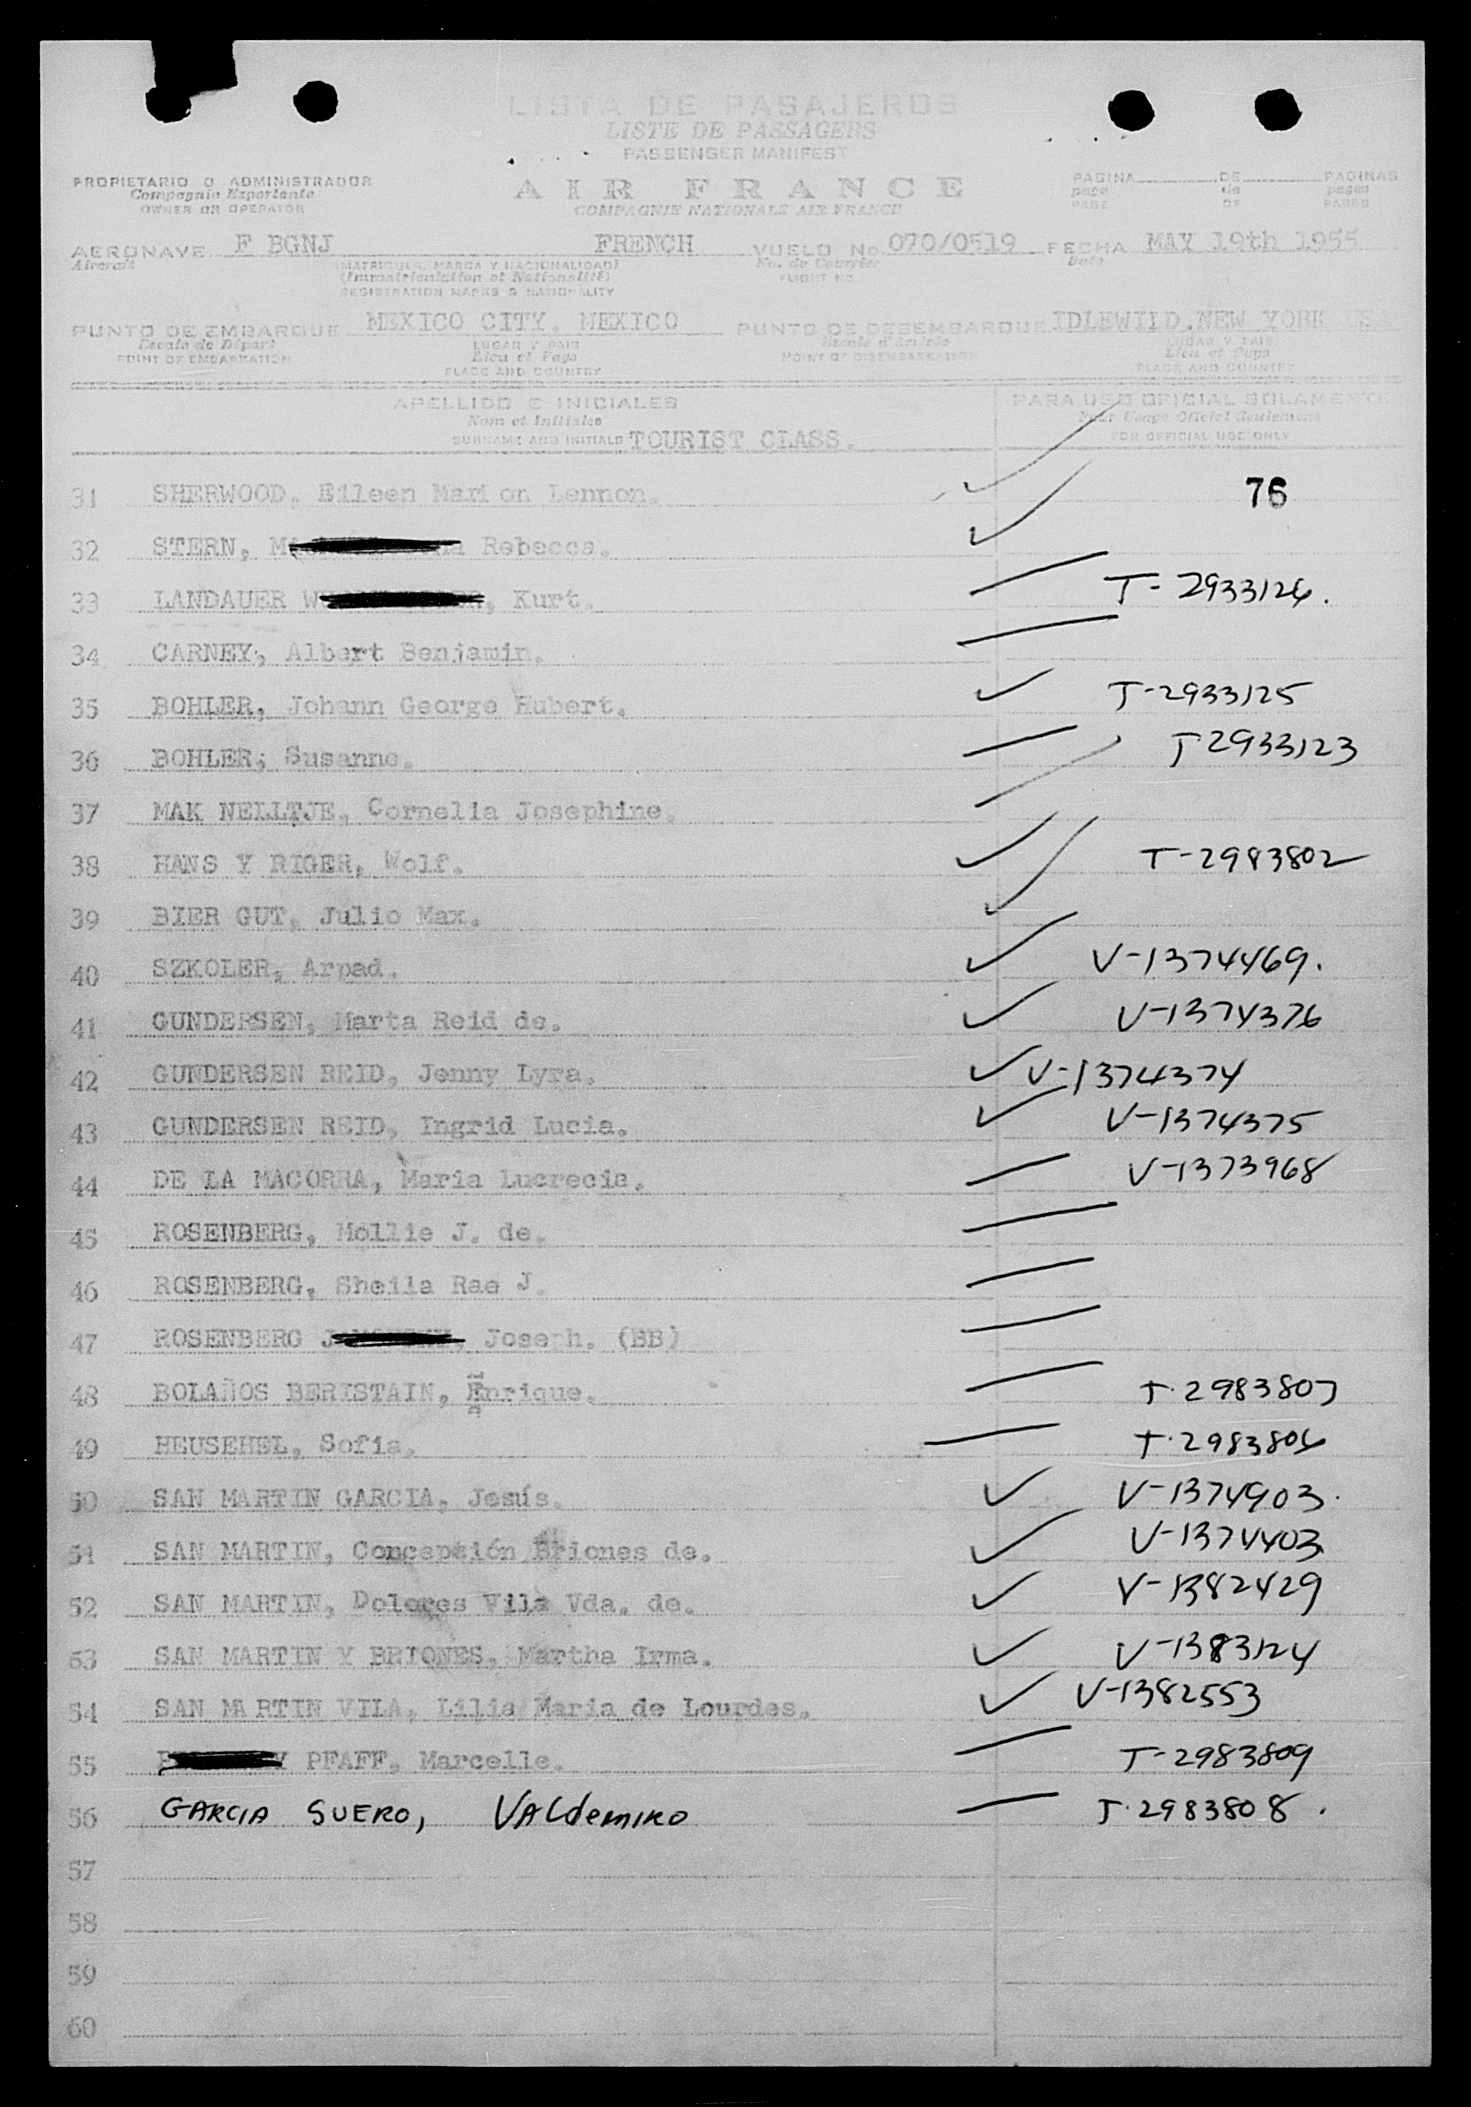 LISTA DE PASAJEROS
LISTE DE PASSAGERS
PASSENGER MANIFEST
PROPIETARIO O ADMINISTRADOR
Compagnie Exportante
OWNER OR OPERATOR
AIR FRANCE
COMPAGNIE NATIONALE AIR FRANCE
PAGINA DE PAGINAS
page de pages
PAGE OF PAGES
AERONAVE F BGNJ FRENCH VUELO No. 070/0519 FECHA MAY 19th 1955
Aircraft (MATRICULA, MARCA Y NACIONALIDAD) No. de Courrier Date
(Immatriculation et Nationalité) FLIGHT NO
REGISTRATION MARKS & NATIONALITY
PUNTO DE EMBARQUE MEXICO CITY. MEXICO PUNTO DE DESEMBARQUE IDLEWILD.NEW YORK USA
Escale de Départ LUGAR Y PAIS Escale d'Arrivée LUGAR Y PAIS
POINT OF EMBARKATION Lieu et Pays POINT OF DISEMBARKATION Lieu et Pays
PLACE AND COUNTRY PLACE AND COUNTRY
APELLIDO E INICIALES PARA USO OFICIAL SOLAMENTE
Nom et Initiales Pour Usage Officiel Seulement
SURNAME AND INITIALS TOURIST CLASS. FOR OFFICIAL USE ONLY
31 SHERWOOD. Eileen Marion Lennon. 76
32 STERN, Rebecca.
33 LANDAUER Kurt. T-2933124.
34 CARNEY, Albert Benjamin.
35 BOHLER, Johann George Hubert. T-2933125
36 BOHLER; Susanne. T 2933123
37 MAK NELLTJE, Cornelia Josephine.
38 HANS Y RIGER, Wolf. T-2983802
39 BIER GUT, Julio Max.
40 SZKOLER, Arpad. V-1374469.
41 GUNDERSEN, Marta Reid de. V-1374376
42 GUNDERSEN REID, Jenny Lyra. V-1374374
43 GUNDERSEN REID, Ingrid Lucia. V-1374375
44 DE LA MACORRA, Maria Lucrecia. V-1373968
45 ROSENBERG, Mollie J. de.
46 ROSENBERG, Sheila Rae J.
47 ROSENBERG Joseph. (BB)
48 BOLAÑOS BERISTAIN, Enrique. T. 2983807
49 HEUSEHEL, Sofia. T. 2983806
50 SAN MARTIN GARCIA, Jesús. V-1374903.
51 SAN MARTIN, Concepción Briones de. V-1374403
52 SAN MARTIN, Dolores Vila Vda. de. V-1382429
53 SAN MARTIN Y BRIONES, Martha Irma. V-1383124
54 SAN MARTIN VILA, Lilia Maria de Lourdes. V-1382553
55 PFAFF, Marcelle. T-2983809
56 GARCIA SUERO, VALdemiRO T. 2983808.
57
58
59
60